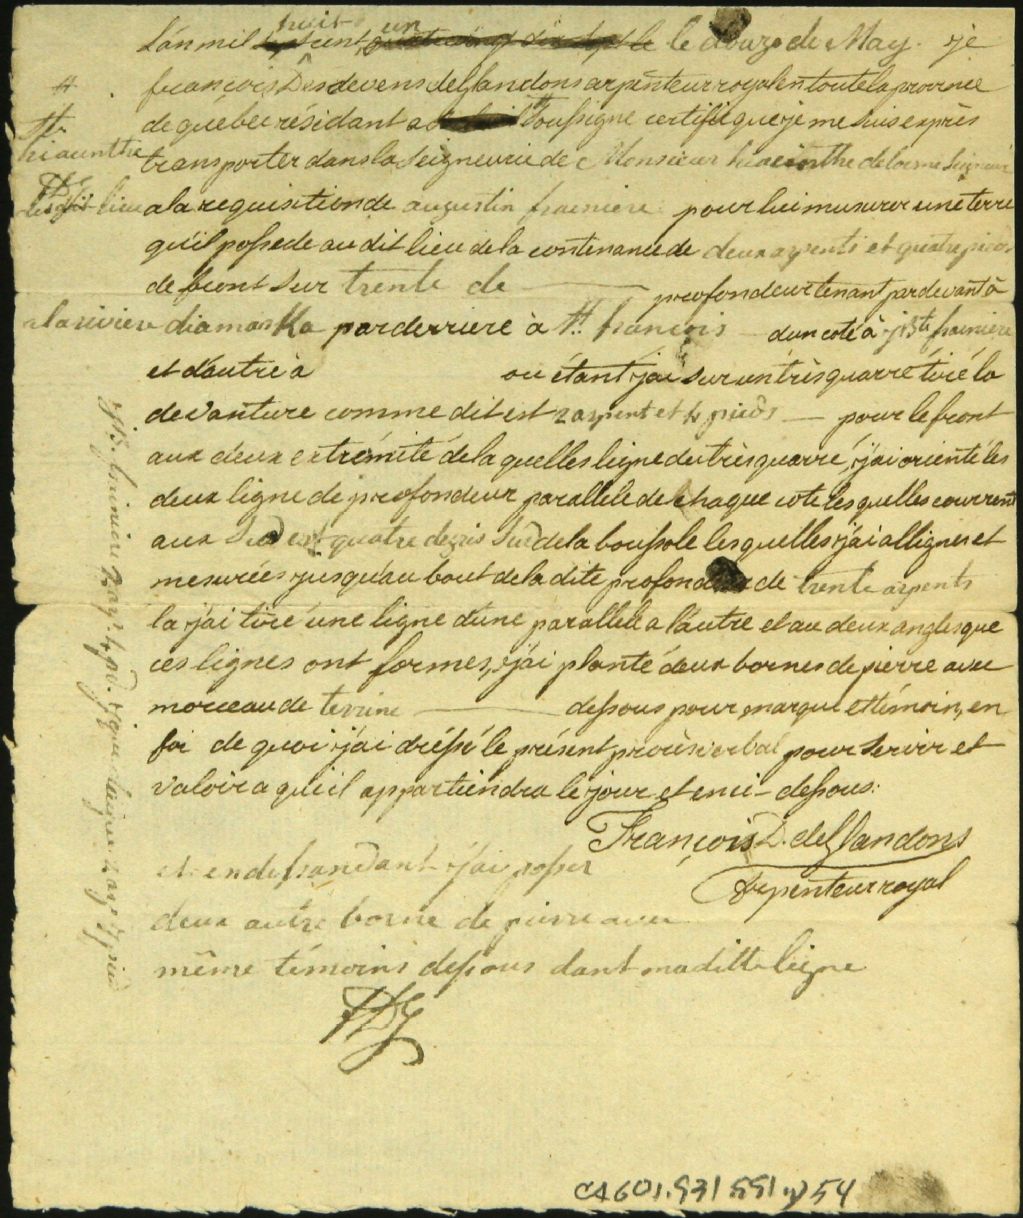 huit un
L'an mil sept cent quatre vingt dix sept le le douze de May. je
françois Desdevens deGlandons arpenteur royal en toute la province
de québec résidant a # Soussigné certifie que je me suis exprès
# St. hiacinthe
transporter dans la Seigneurie de Monsieur hiacinthe delorme Seigneur
lieu
a la requisition de augustin frainiere pour lui musurer une terre
qu'il possede au dit lieu de la contenance de deux arpents et quatre pieds
de front sur trente de profondeur tenant par devant à
a la riviere diamaska par derriere à St. francois d'un coté à j Bte frainiere
et d'autre à ou étant j'ai sur un très quarré tiré la
devanture comme dit est 2 arpent et 4 pieds pour le front
aux deux extrémité de la quelles ligne du très quarré, j'ai orienté les
deux ligne de profondeur parallele de chaque coté les quelles courrent
aux Sud est quatre degrés Sud de la boussole les quelles j'ai alligner et
mesurées jusqu'au bout de la dite profondeur de trente arpents
la j'ai tiré une ligne d'une parallele a l'autre et au deux angles que
ces lignes ont formes, j'ai planté deux bornes de pierre avec
morceau de terrine dessous pour marque et témoin, en
foi de quoi j'ai dréssé le présent procès verbal pour servir et
valoir a qu'il appartiendra le jour et en ci-dessous:
François D. deGlandons
Arpenteur royal
et en dessandant j'ai posser
deux autre borne de pierre avec
même témoins dessous dant maditte ligne
FDG
CA601,S31,SS1,P54